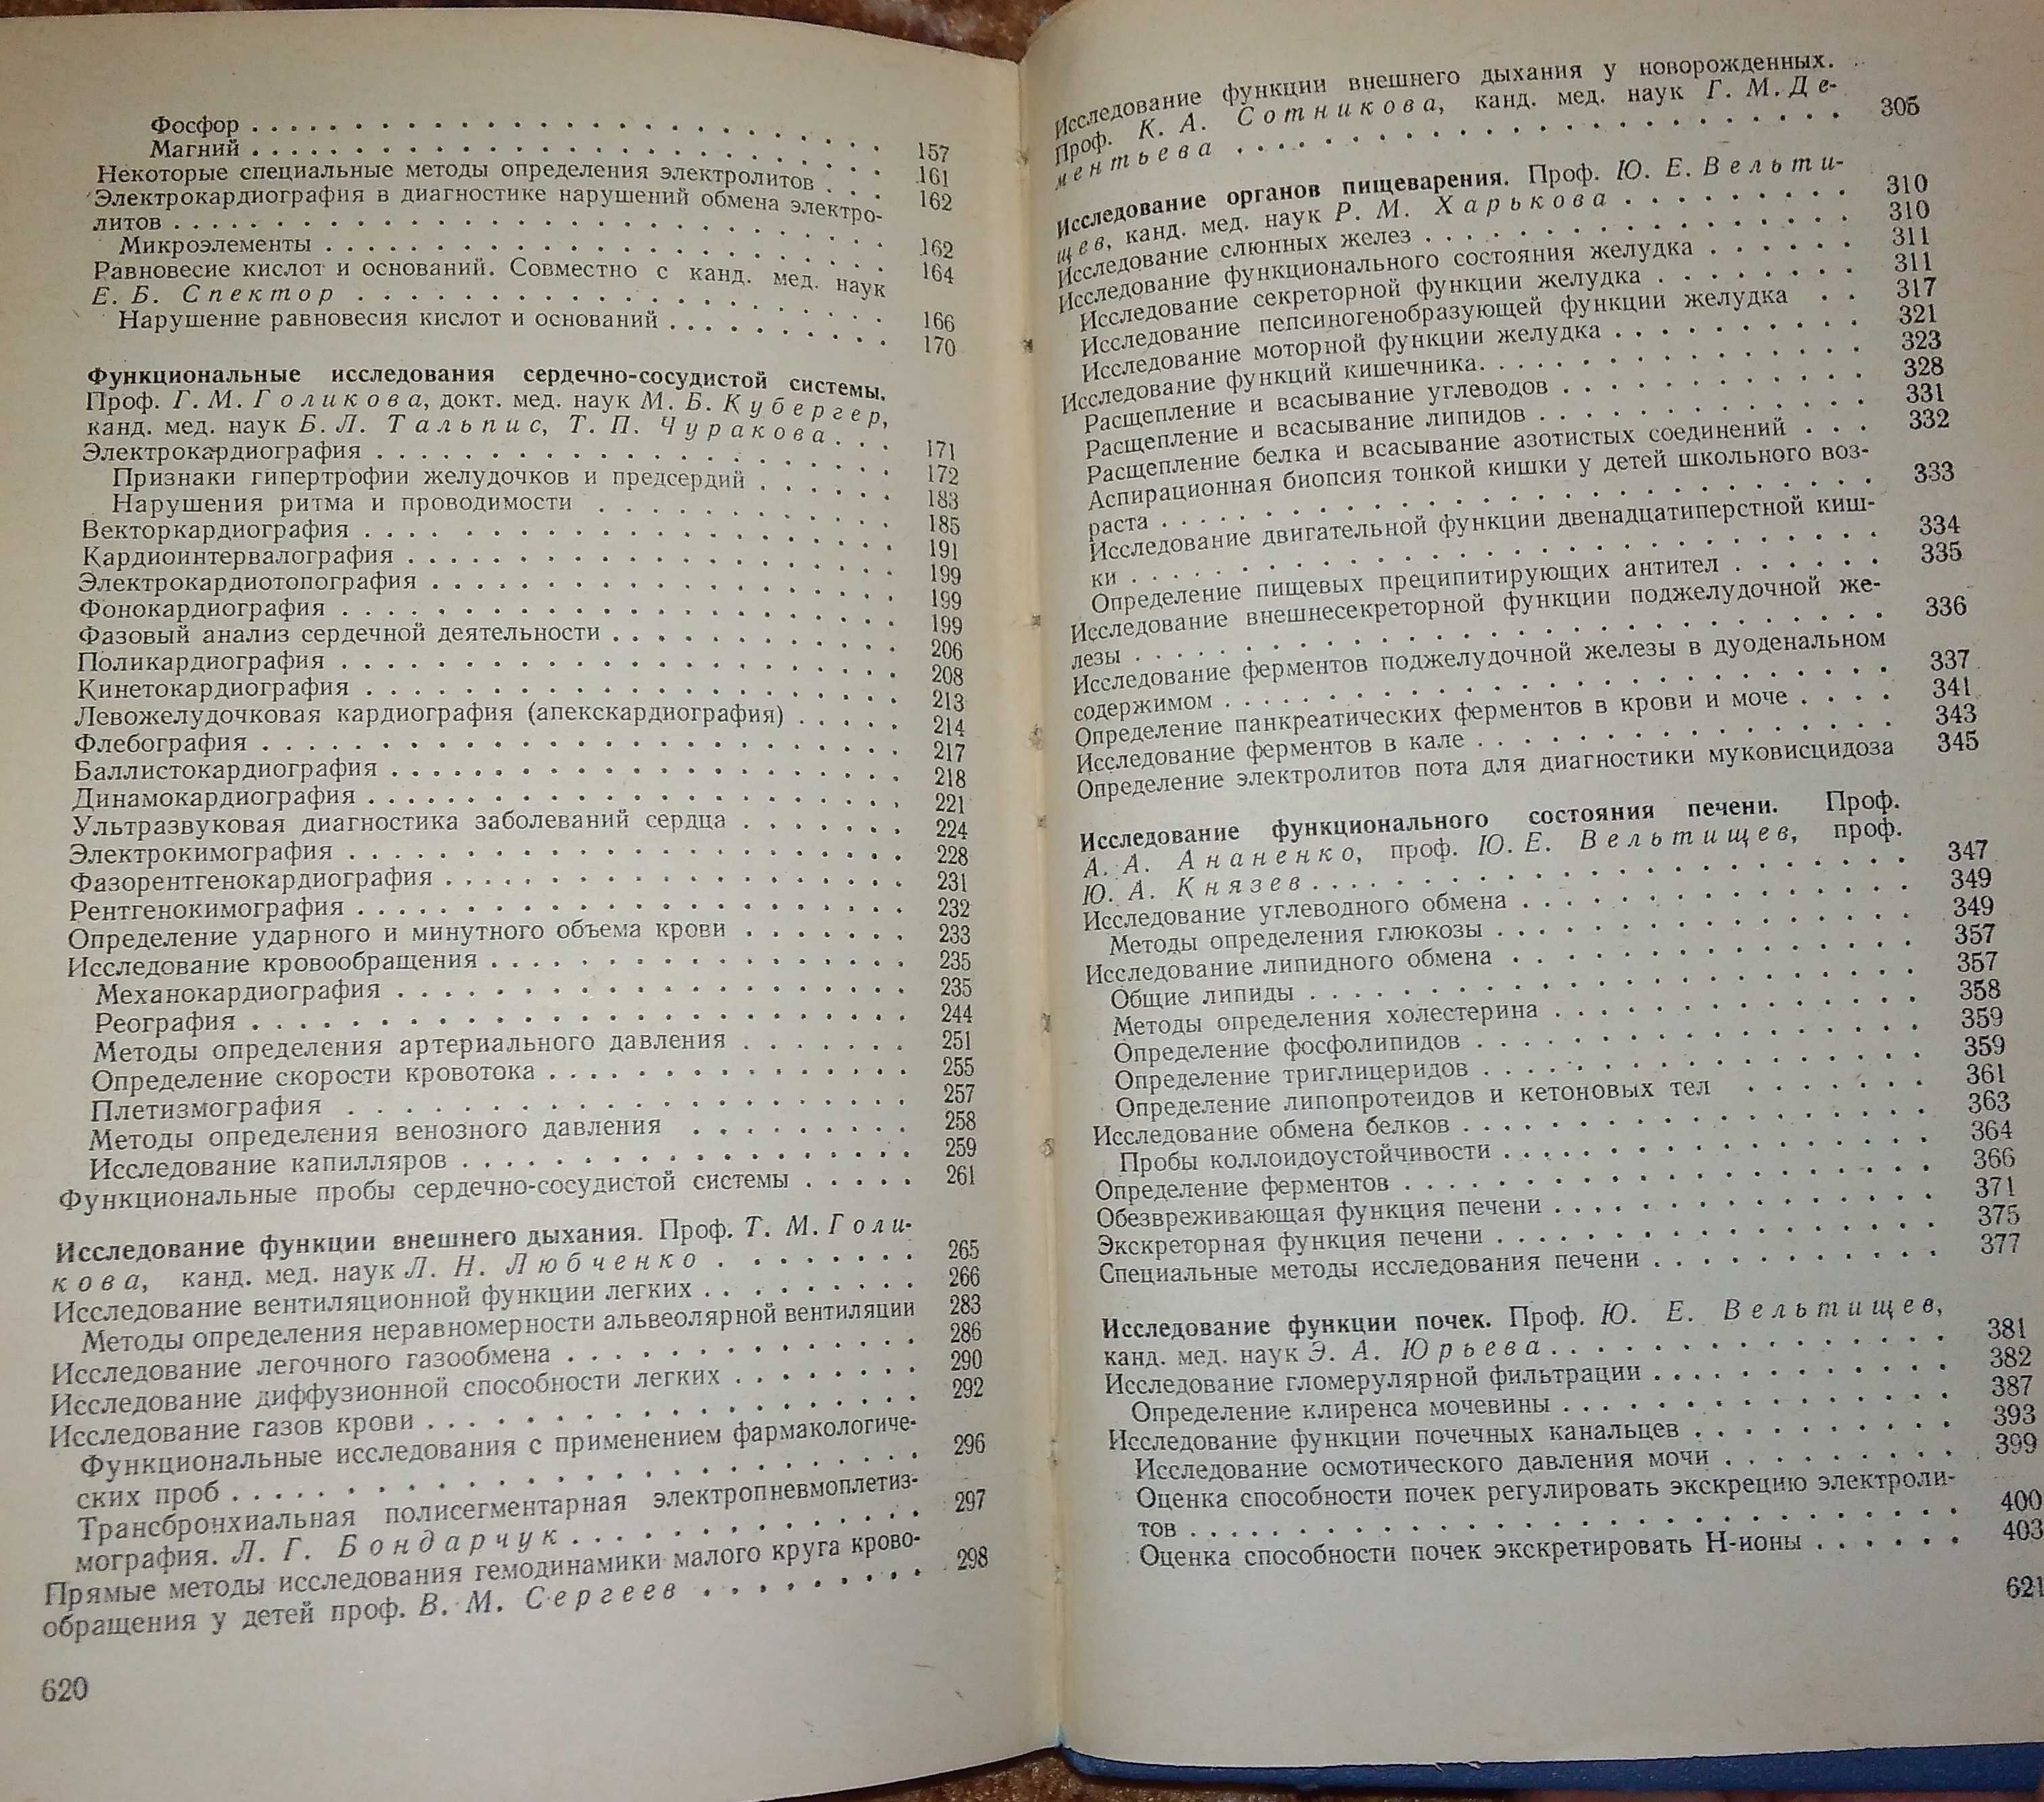 Фосфор . . . . . . . . . . . . . . . . . . . . . . 157
Магний . . . . . . . . . . . . . . . . . . . . . . 161
Некоторые специальные методы определения электролитов . . . 162
Электрокардиография в диагностике нарушений обмена электро-
литов . . . . . . . . . . . . . . . . . . . . . . 162
Микроэлементы . . . . . . . . . . . . . . . . . . 164
Равновесие кислот и оснований. Совместно с канд. мед. наук
Е. Б. Спектор . . . . . . . . . . . . . . . . . . 166
Нарушение равновесия кислот и оснований . . . . . . . . 170
Функциональные исследования сердечно-сосудистой системы.
Проф. Г. М. Голикова, докт. мед. наук М. Б. Кубергер,
канд. мед. наук Б. Л. Тальпис, Т. П. Чуракова . . . 171
Электрокардиография . . . . . . . . . . . . . . . 172
Признаки гипертрофии желудочков и предсердий . . . . . 183
Нарушения ритма и проводимости . . . . . . . . . . 185
Векторкардиография . . . . . . . . . . . . . . . . 191
Кардиоинтервалография . . . . . . . . . . . . . . 199
Электрокардиотопография . . . . . . . . . . . . . 199
Фонокардиография . . . . . . . . . . . . . . . . . 199
Фазовый анализ сердечной деятельности . . . . . . . . 206
Поликардиография . . . . . . . . . . . . . . . . . 208
Кинетокардиография . . . . . . . . . . . . . . . . 213
Левожелудочковая кардиография (апекскардиография) . . . . 214
Флебография . . . . . . . . . . . . . . . . . . . 217
Баллистокардиография . . . . . . . . . . . . . . . 218
Динамокардиография . . . . . . . . . . . . . . . . 221
Ультразвуковая диагностика заболеваний сердца . . . . . . 224
Электрокимография . . . . . . . . . . . . . . . . 228
Фазорентгенокардиография . . . . . . . . . . . . . 231
Рентгенокимография . . . . . . . . . . . . . . . . 232
Определение ударного и минутного объема крови . . . . . . 233
Исследование кровообращения . . . . . . . . . . . . 235
Механокардиография . . . . . . . . . . . . . . . . 235
Реография . . . . . . . . . . . . . . . . . . . . 244
Методы определения артериального давления . . . . . . . 251
Определение скорости кровотока . . . . . . . . . . . 255
Плетизмография . . . . . . . . . . . . . . . . . . 257
Методы определения венозного давления . . . . . . . . 258
Исследование капилляров . . . . . . . . . . . . . . 259
Функциональные пробы сердечно-сосудистой системы . . . . . 261
Исследование функции внешнего дыхания. Проф. Т. М. Голи-
кова, канд. мед. наук Л. Н. Любченко . . . . . . . 265
Исследование вентиляционной функции легких . . . . . . . 266
Методы определения неравномерности альвеолярной вентиляции 283
Исследование легочного газообмена . . . . . . . . . . 286
Исследование диффузионной способности легких . . . . . . 290
Исследование газов крови . . . . . . . . . . . . . . 292
Функциональные исследования с применением фармакологиче-
ских проб . . . . . . . . . . . . . . . . . . . . 296
Трансбронхиальная полисегментарная электропневмоплетиз-
мография. Л. Г. Бондарчук . . . . . . . . . . . . 297
Прямые методы исследования гемодинамики малого круга крово-
обращения у детей проф. В. М. Сергеев . . . . . . . . 298
620
Исследование функции внешнего дыхания у новорожденных.
Проф. К. А. Сотникова, канд. мед. наук Г. М. Де-
ментьева . . . . . . . . . . . . . . . . . . . . 305
Исследование органов пищеварения. Проф. Ю. Е. Вельти-
щев, канд. мед. наук Р. М. Харькова . . . . . . . . 310
Исследование слюнных желез . . . . . . . . . . . . . 310
Исследование функционального состояния желудка . . . . . 311
Исследование секреторной функции желудка . . . . . . . 311
Исследование пепсиногенобразующей функции желудка . . 317
Исследование моторной функции желудка . . . . . . . . 321
Исследование функций кишечника . . . . . . . . . . . 323
Расщепление и всасывание углеводов . . . . . . . . . 328
Расщепление и всасывание липидов . . . . . . . . . . 331
Расщепление белка и всасывание азотистых соединений . . . 332
Аспирационная биопсия тонкой кишки у детей школьного воз-
раста . . . . . . . . . . . . . . . . . . . . . . 333
Исследование двигательной функции двенадцатиперстной киш-
ки . . . . . . . . . . . . . . . . . . . . . . . 334
Определение пищевых преципитирующих антител . . . . . 335
Исследование внешнесекреторной функции поджелудочной же-
лезы . . . . . . . . . . . . . . . . . . . . . . 336
Исследование ферментов поджелудочной железы в дуоденальном
содержимом . . . . . . . . . . . . . . . . . . . 337
Определение панкреатических ферментов в крови и моче . . . . 341
Исследование ферментов в кале . . . . . . . . . . . . 343
Определение электролитов пота для диагностики муковисцидоза 345
Исследование функционального состояния печени. Проф.
А. А. Ананенко, проф. Ю. Е. Вельтищев, проф.
Ю. А. Князев . . . . . . . . . . . . . . . . . . 347
Исследование углеводного обмена . . . . . . . . . . . 349
Методы определения глюкозы . . . . . . . . . . . . 349
Исследование липидного обмена . . . . . . . . . . . . 357
Общие липиды . . . . . . . . . . . . . . . . . . 357
Методы определения холестерина . . . . . . . . . . . 358
Определение фосфолипидов . . . . . . . . . . . . . 359
Определение триглицеридов . . . . . . . . . . . . . 359
Определение липопротеидов и кетоновых тел . . . . . . . 361
Исследование обмена белков . . . . . . . . . . . . . 363
Пробы коллоидоустойчивости . . . . . . . . . . . . . 364
Определение ферментов . . . . . . . . . . . . . . . 366
Обезвреживающая функция печени . . . . . . . . . . . 371
Экскреторная функция печени . . . . . . . . . . . . . 375
Специальные методы исследования печени . . . . . . . . 377
Исследование функции почек. Проф. Ю. Е. Вельтищев,
канд. мед. наук Э. А. Юрьева . . . . . . . . . . . 381
Исследование гломерулярной фильтрации . . . . . . . . 382
Определение клиренса мочевины . . . . . . . . . . . 387
Исследование функции почечных канальцев . . . . . . . . 393
Исследование осмотического давления мочи . . . . . . . 399
Оценка способности почек регулировать экскрецию электроли-
тов . . . . . . . . . . . . . . . . . . . . . . . 400
Оценка способности почек экскретировать Н-ионы . . . . . . 403
621